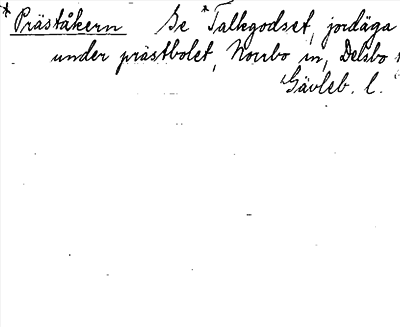 * Präståkern Se * Talkgodset, jordäga
under prästbolet, Norrbo sn, Delsbo
Gävleb. l.